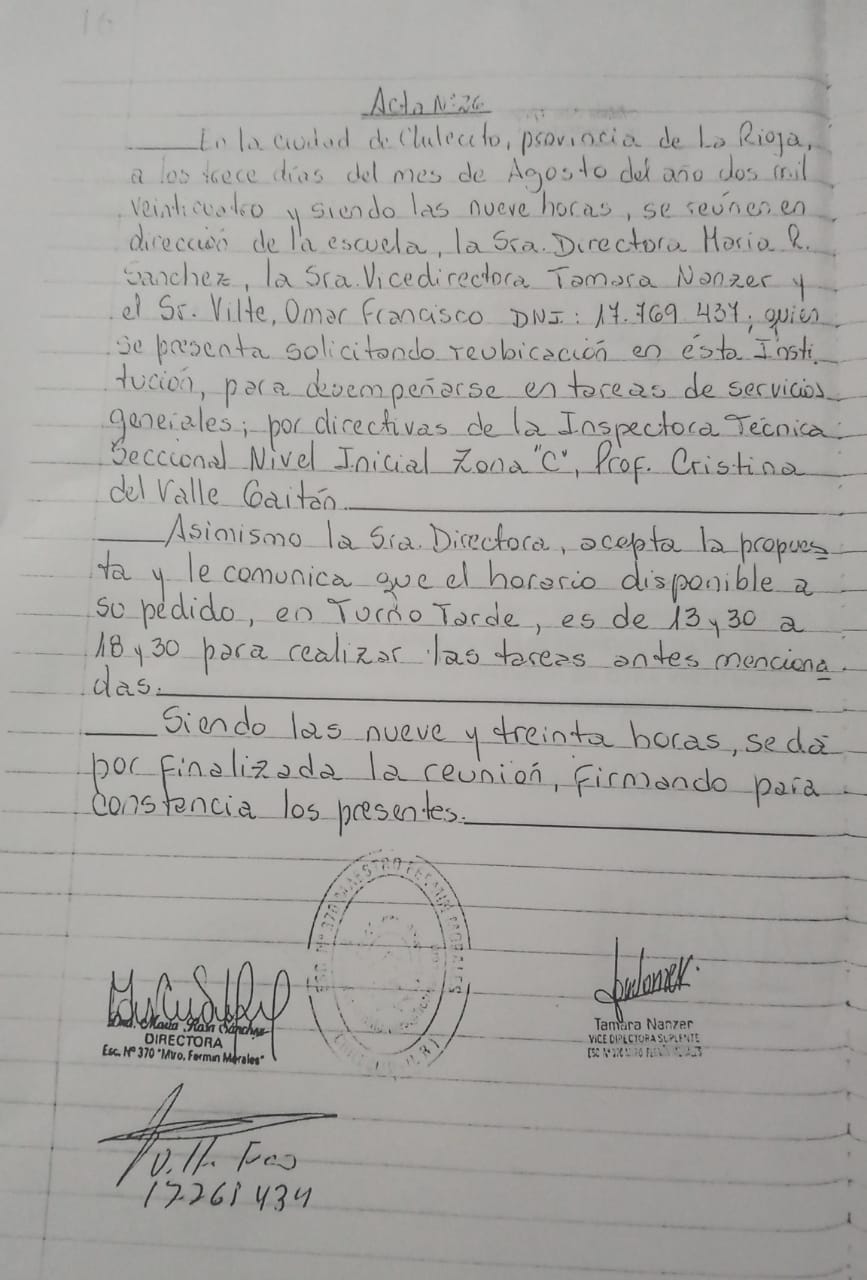 16
Acta N°:26
En la ciudad de Chilecito, provincia de La Rioja,
a los trece días del mes de Agosto del año dos mil
veinticuatro y siendo las nueve horas, se reúnen en
dirección de la escuela, la Sra. Directora María R.
Sanchez, la Sra. Vicedirectora Tamara Nanzer y
el Sr. Vilte, Omar Francisco DNI: 17.769 437, quien
se presenta solicitando reubicación en ésta Insti
tución, para desempeñarse en tareas de servicios
generales; por directivas de la Inspectora Técnica
Seccional Nivel Inicial Zona "C", Prof. Cristina
del Valle Gaitán.
Asimismo la Sra. Directora, acepta la propues
ta y le comunica que el horario disponible a
su pedido, en Turno Tarde, es de 13 y 30 a
18 y 30 para realizar las tareas antes menciona
das.
Siendo las nueve y treinta horas, se dá
por finalizada la reunión, firmando para
constancia los presentes.
ESC. Nº 370 MAESTRO FERMIN MORALES
María Sánchez
DIRECTORA
Esc. Nº 370 "Mtro. Fermin Morales"
Tamara Nanzer
VICE DIRECTORA SUPLENTE